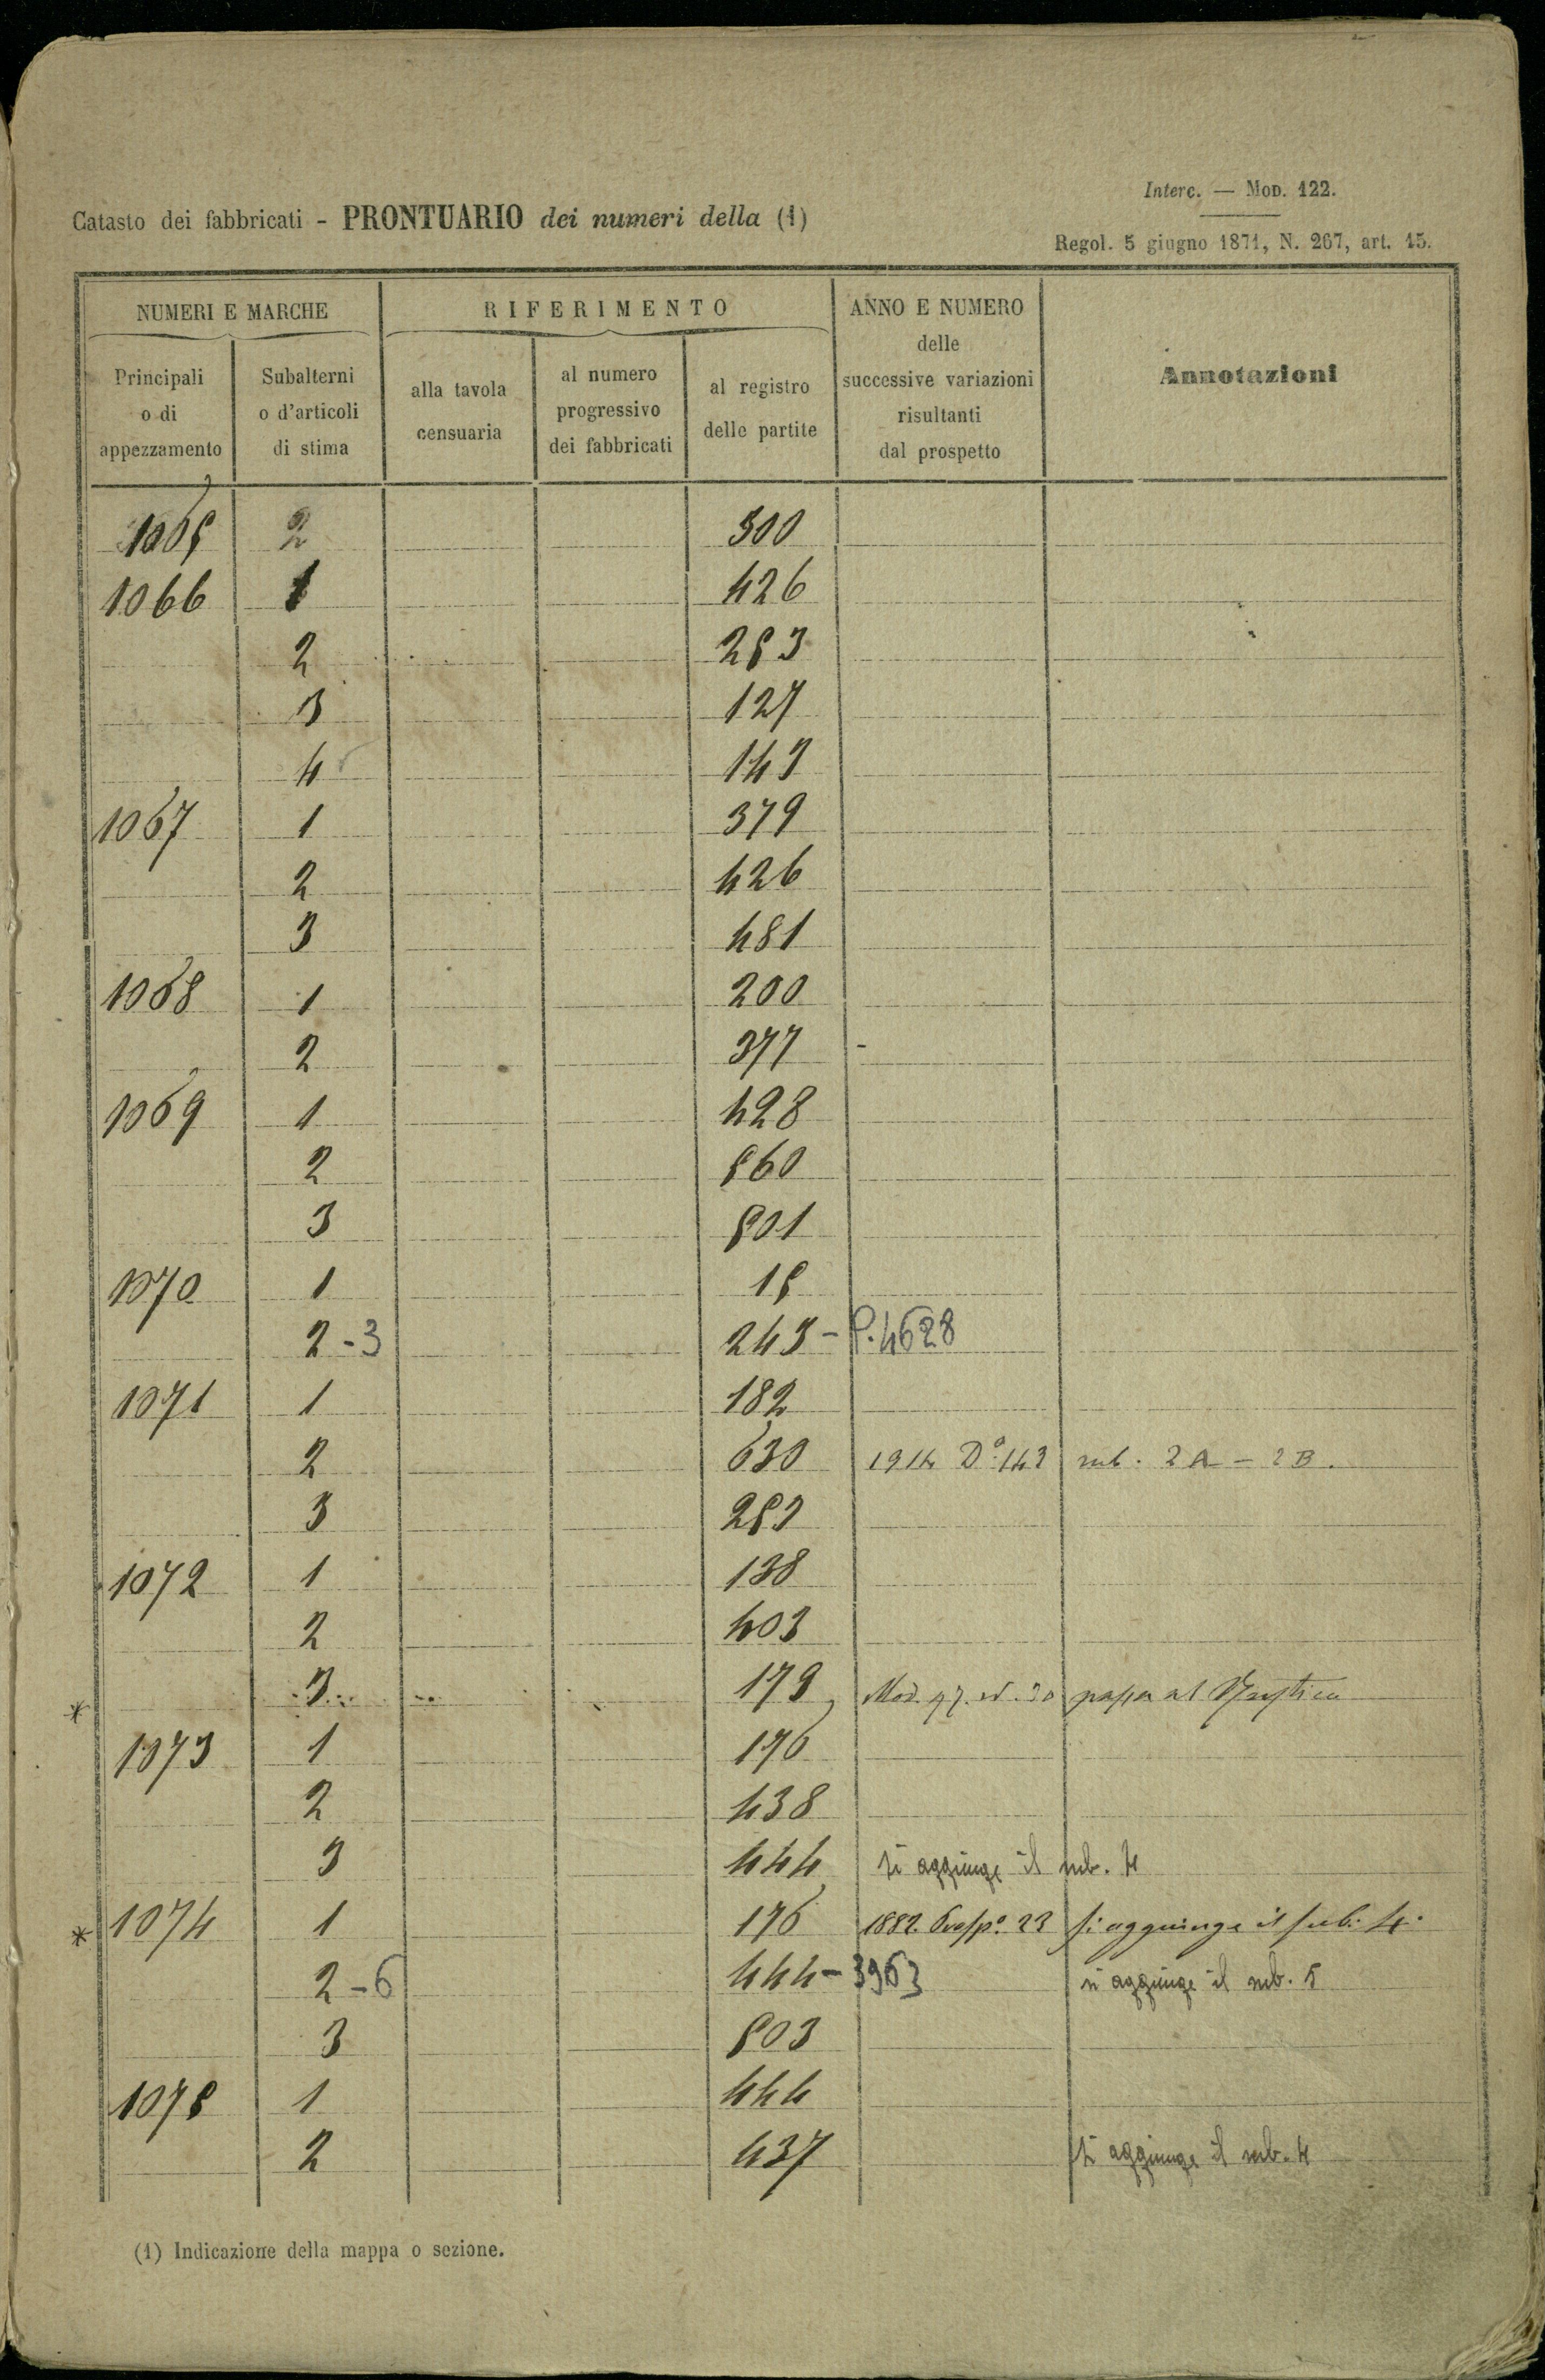 Interc. — Mod. 122.
Catasto dei fabbricati - PRONTUARIO dei numeri della (1)
Regol. 5 giugno 1871, N. 267, art. 15.
NUMERI E MARCHE
RIFERIMENTO
ANNO E NUMERO
delle
successive variazioni
risultanti
dal prospetto
Annotazioni
Principali
o di
appezzamento
Subalterni
o d'articoli
di stima
alla tavola
censuaria
al numero
progressivo
dei fabbricati
al registro
delle partite
1065 2 300
1066 1 426
2 253
3 127
4 143
1067 1 379
2 426
3 481
1068 1 200
2 377
1069 1 428
2 560
3 501
1070 1 15
2 - 3 243 - P. 4628
1071 1 182
2 630 1914 D° 143 sub. 2A - 2B.
3 253
1072 1 138
2 403
* 3 179 Mod. 97. passa al
1073 1 176
2 438
3 444 si aggiunge il sub. 4
* 1074 1 176 1882. Prosp° 23 si aggiunge il sub. 4.
2 - 6 444 - 3963 si aggiunge il sub. 5
3 503
1075 1 444
2 437 si aggiunge il sub. 4
(1) Indicazione della mappa o sezione.